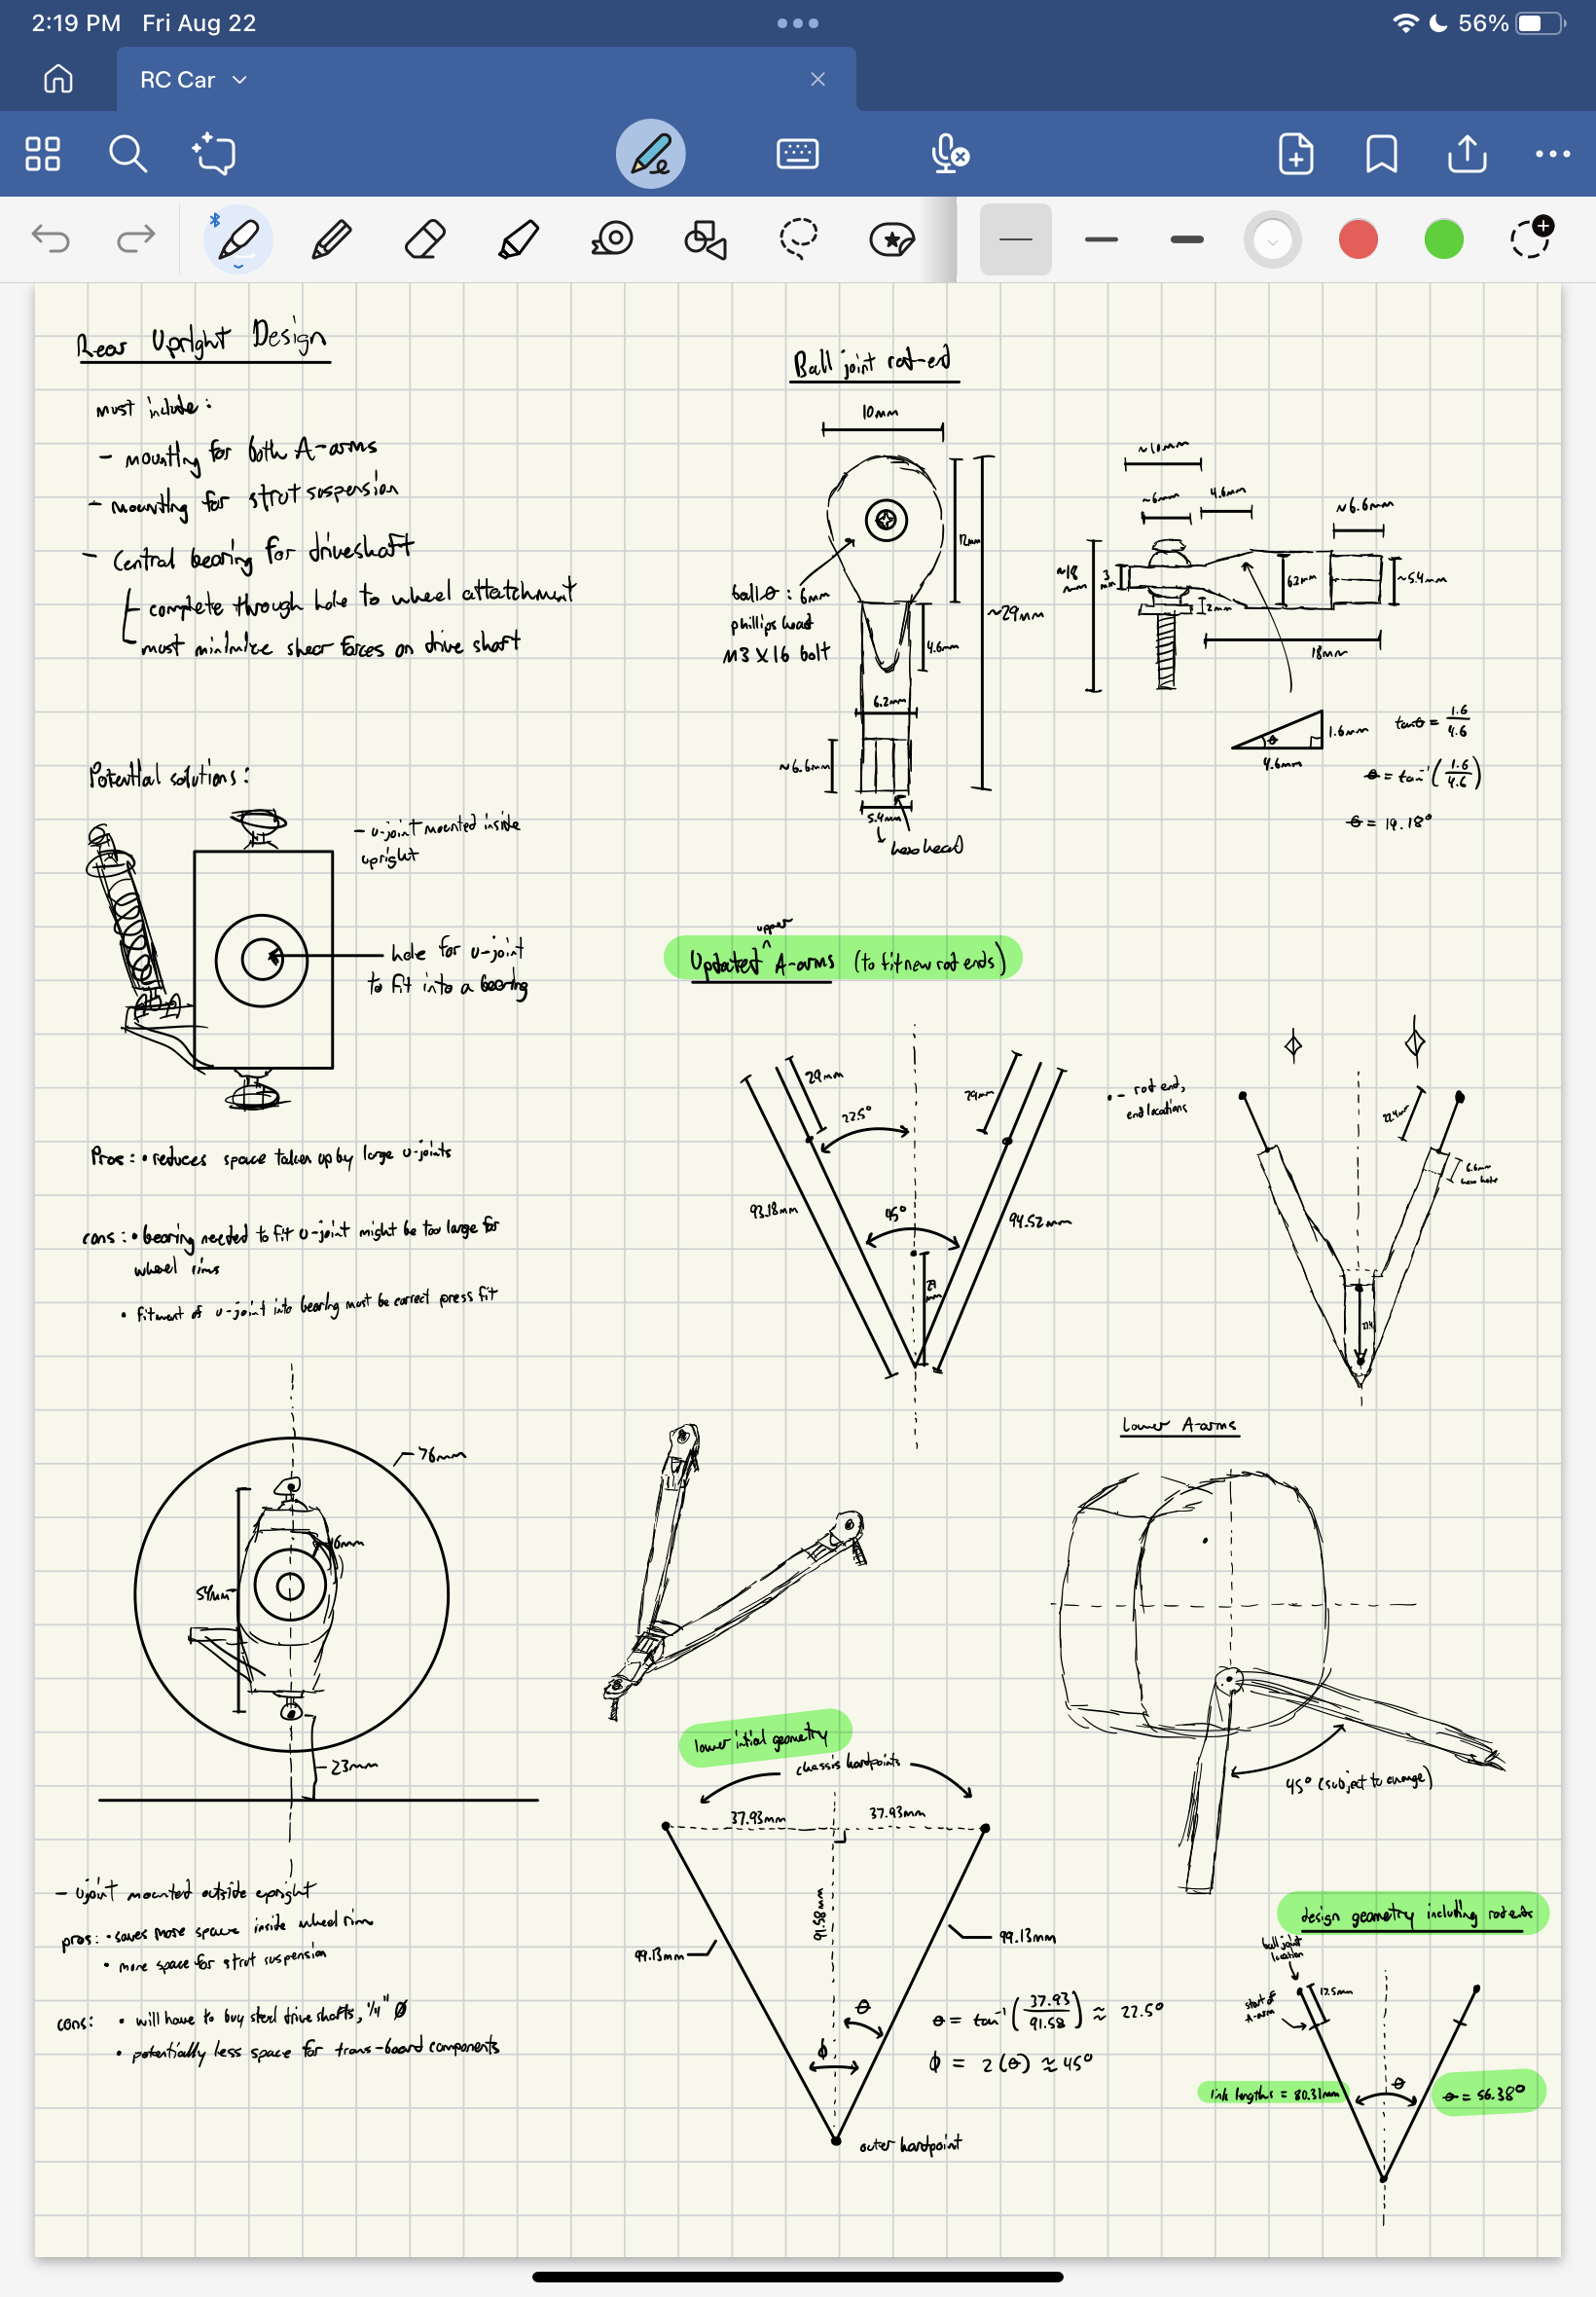 2:19 PM Fri Aug 22
56%
RC Car
Rear Upright Design
must include:
- mounting for both A-arms
- mounting for strut suspension
- Central bearing for driveshaft
complete through hole to wheel attatchment
must minimize shear forces on drive shaft
Potential solutions:
- u-joint mounted inside
upright
hole for u-joint
to fit into a bearing
Pros: • reduces space taken up by large u-joints
cons: • bearing needed to fit u-joint might be too large for
wheel rims
• fitment of u-joint into bearing must be correct press fit
76mm
16mm
54mm
23mm
- Ujoint mounted outside upright
pros: • saves more space inside wheel rim
• more space for strut suspension
cons: • will have to buy steel drive shafts, 1/4" Ø
• potentially less space for trans-board components
Ball joint rod-end
10mm
12mm
~29mm
ball Ɵ: 6mm
phillips head
M3 X 16 bolt
4.6mm
6.2mm
~6.6mm
5.4mm
hex head
~10mm
~6mm
4.6mm
~6.6mm
~18
mm
3
mm
6.2mm
~5.4mm
2mm
18mm
1.6mm
θ
4.6mm
tanθ = 1.6/4.6
θ = tan⁻¹(1.6/4.6)
θ = 19.18°
Updated upper A-arms (to fit new rod ends)
29mm
29mm
22.5°
45°
93.18mm
94.52mm
29
mm
• - rod end,
end locations
22.4mm
6.6mm
hex hole
22.4
Lower A-arms
45° (subject to change)
lower intial geometry
chassis hardpoints
37.93mm
37.93mm
91.58mm
99.13mm
99.13mm
θ
ϕ
outer hardpoint
θ = tan⁻¹(37.93/91.58) ≈ 22.5°
ϕ = 2(θ) ≈ 45°
design geometry including rod ends
ball joint
location
17.5mm
start of
A-arm
link lengths = 80.31mm
θ
θ = 56.38°